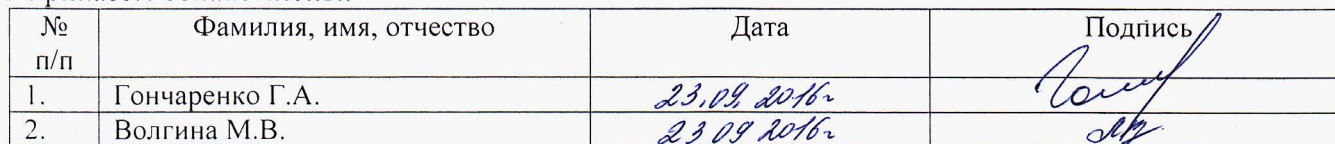 № п/п Фамилия, имя, отчество Дата Подпись
1. Гончаренко Г.А. 23.09. 2016г
2. Волгина М.В. 23 09 2016г